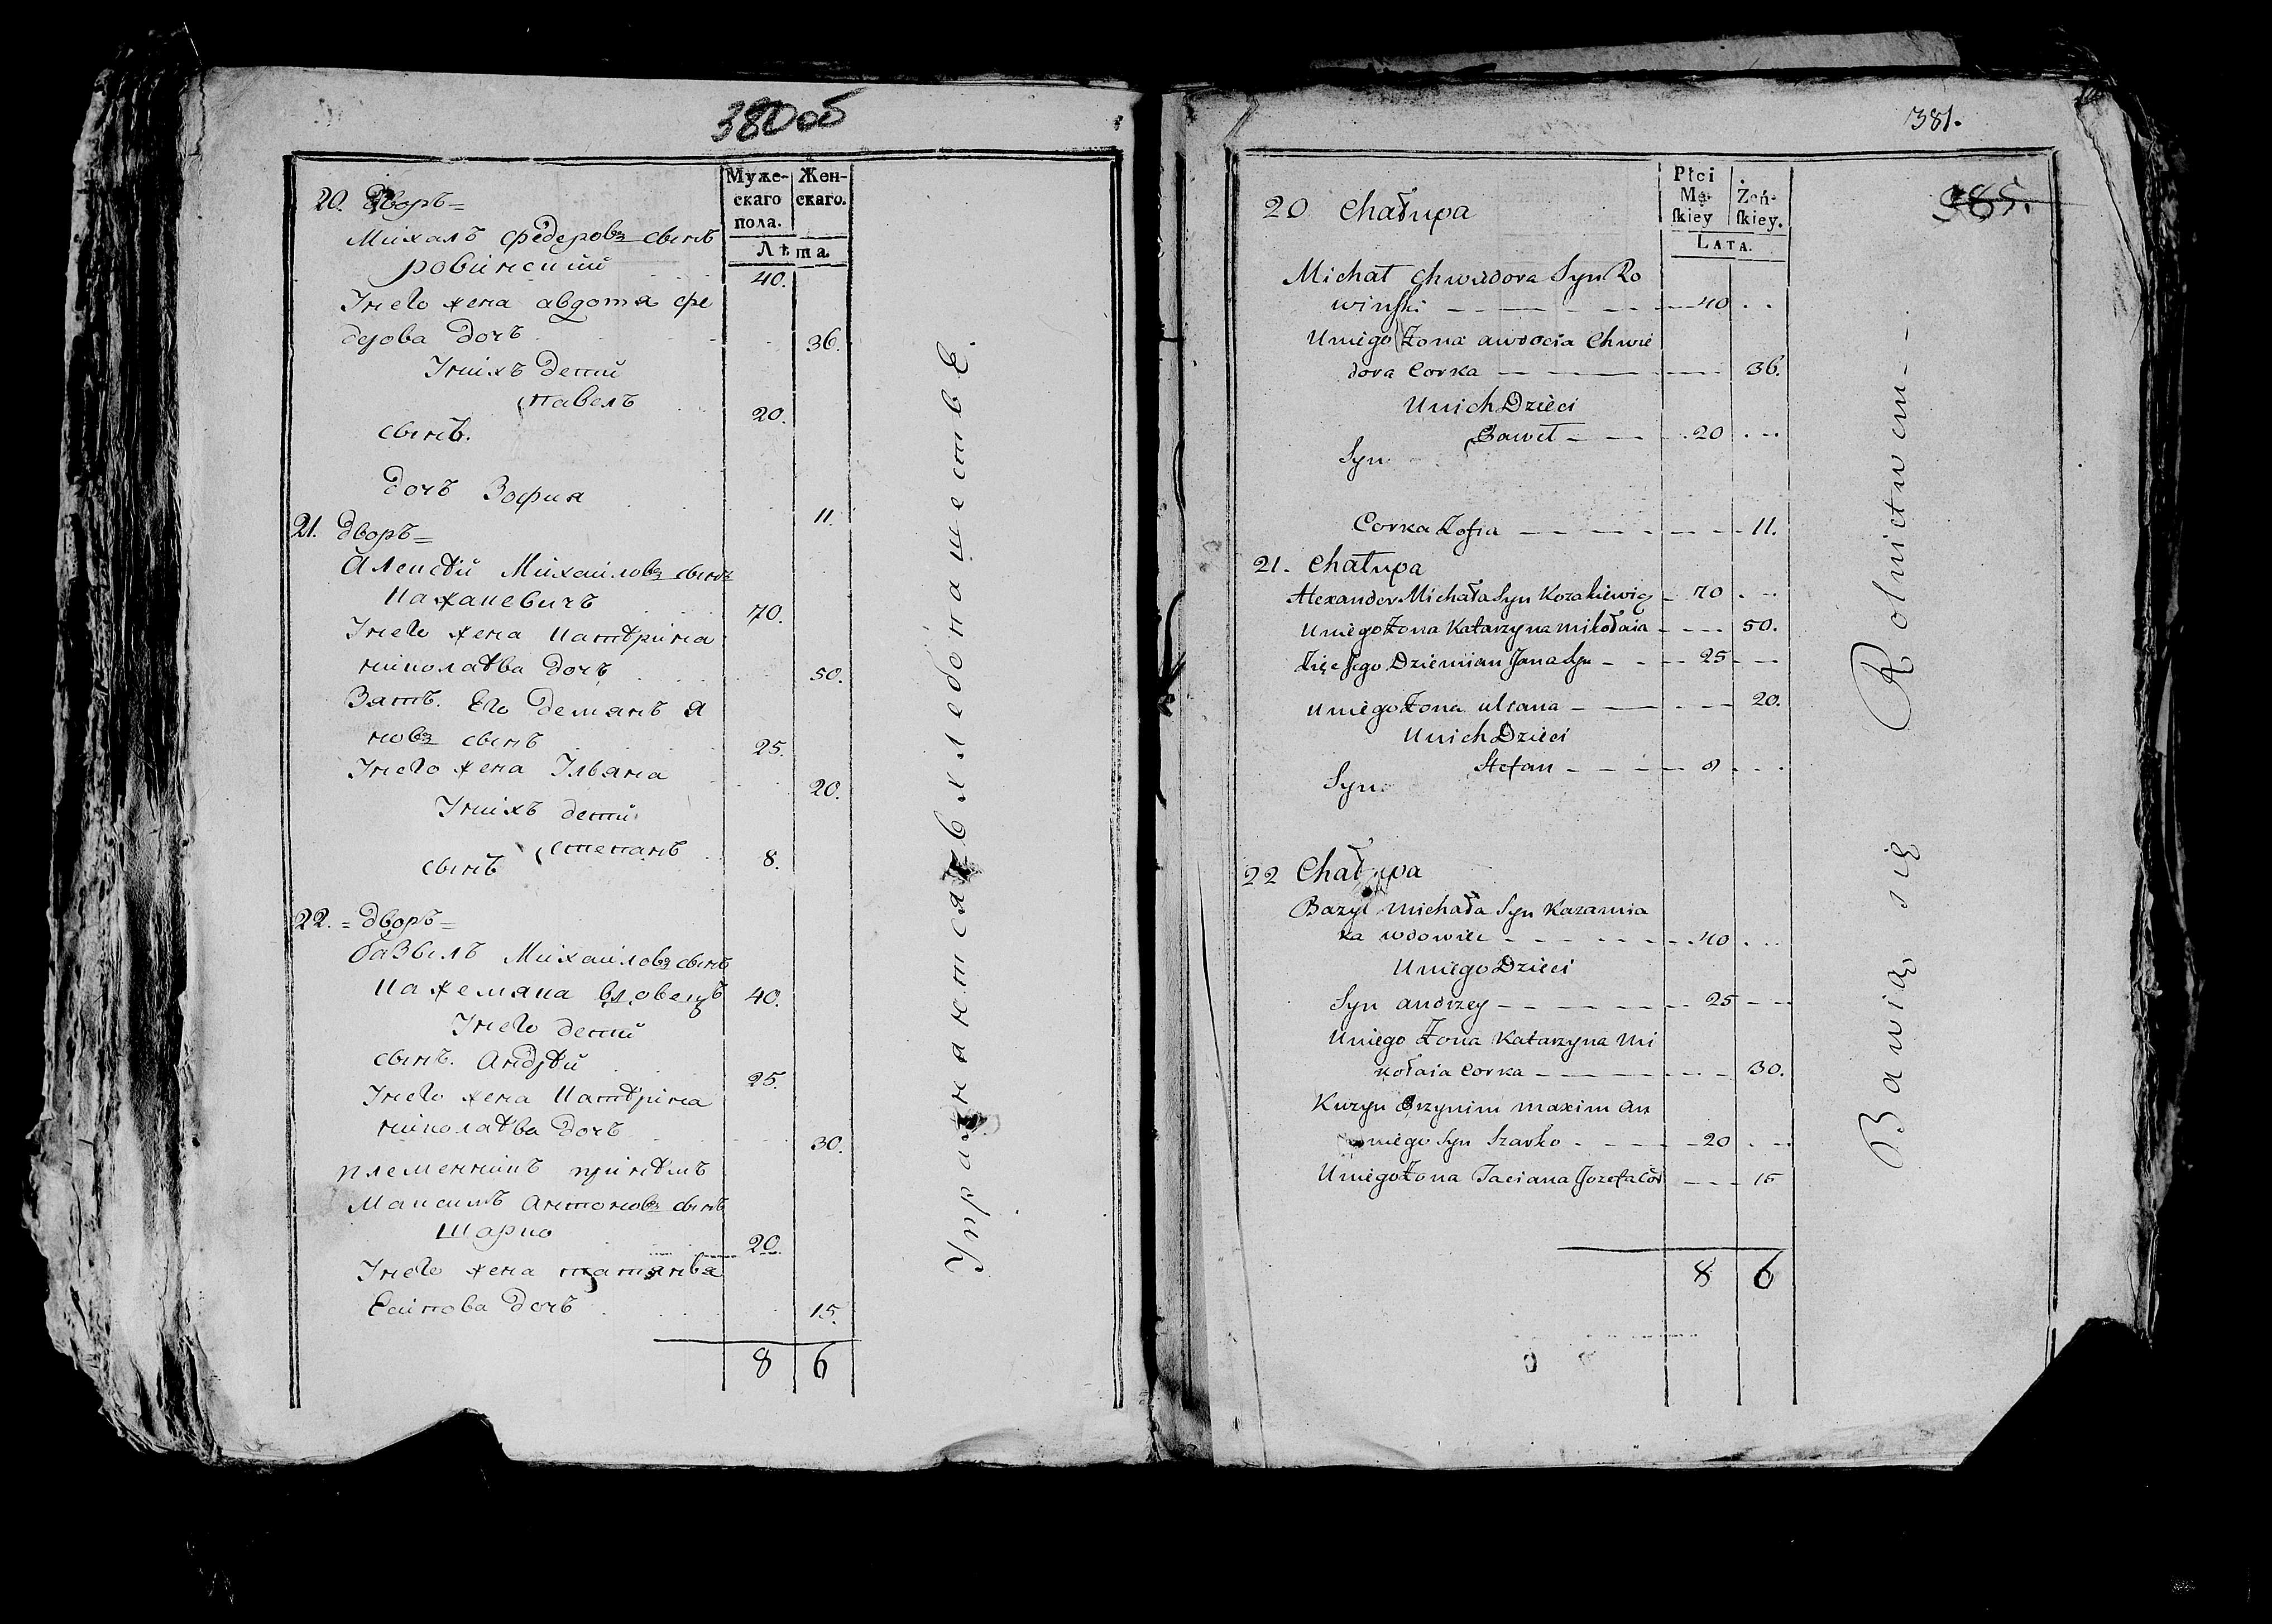 380об
Муже-
скаго
пола.
Жен-
скаго.
Лѣта
20. Дворъ =
Михалъ Федеровъ сынъ
ровинский 40.
Унего жена авдотя фе
дерова дочъ 36.
Унихъ дети
павелъ 20.
сынъ.
дочъ Зофия 11.
21. дворъ =
Михаиловъ сынъ
70.
Унего жена катѣрина
николаѣва дочъ 50.
Зятъ. Его демянъ я
новъ сынъ 25.
Унего жена Ульяна 20.
Унихъ дети
степанъ 8.
сынъ
22. = дворъ =
базылъ Михаиловъ сынъ
вдовецъ 40.
Унего дети
сынъ. Андрѣй 25.
Унего жена катѣрина
николаѣва дочъ 30.
племенникъ принѣмъ
Максимъ антоновъ сынъ
шарко 20.
Унего жена татянна
Есипова дочъ 15.
8 6
Упражняютсявхлебопашестве.
381.
385.
Płci
Mę-
skiey
Żeń-
skiey.
LATA.
20 Chałupa
Michał Chwiedora Syn Ro
winski 40
Uniego Żona awdocia Chwie
dora Corka 36.
Unich Dzieci
Paweł 20
Syn
Corka Zofia 11.
21. Chałupa
Alexander Michała Syn Kozakiewicz 70
Uniego Żona Katarzyna mikołaia 50.
Zięć Jego Dziemian Jana Syn 25
Uniego Żona uliana 20.
Unich Dzieci
Stefan 8
Syn
22 Chałupa
Bazyl michała Syn Kazamia
ka wdowiec 40
Uniego Dzieci
Syn andrzey 25
Uniego Żona Katarzyna mi
kołaia Corka 30.
Kuzyn Przynim maxim an
Syn Szarko 20
Uniego Żona Taciana Jozefa Cor 15
8 6
Bawią się Rolnictwem